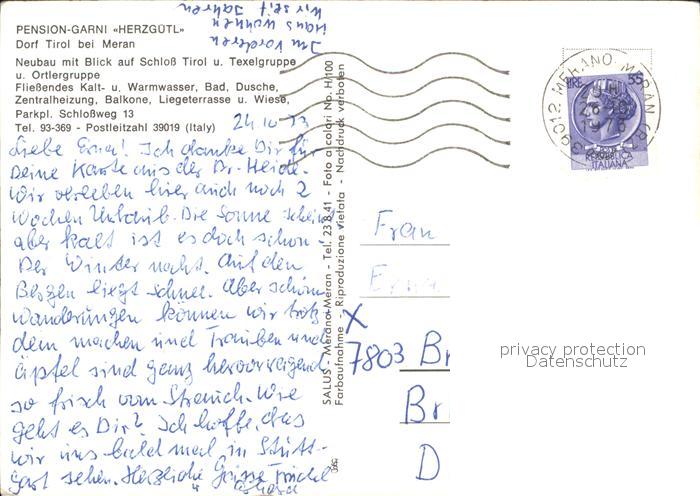 PENSION-GARNI «HERZGÜTL»
Dorf Tirol bei Meran
Neubau mit Blick auf Schloß Tirol u. Texelgruppe
u. Ortlergruppe
Fließendes Kalt- u. Warmwasser, Bad, Dusche,
Zentralheizung, Balkone, Liegeterrasse u. Wiese,
Parkpl. Schloßweg 13
Tel. 93-369 - Postleitzahl 39019 (Italy)
Im vorderen
Haus wohnen
wir seit Jahren
Liebe Erna! Ich danke Dir für
Deine Karte aus der Dr. Heide.
Wir verleben hier auch noch 2
Wochen Urlaub. Die Sonne scheint
aber kalt ist es doch schon.
Der Winter naht. Auf den
Bergen liegt Schnee. Aber schöne
Wanderungen können wir trotz
dem machen und Trauben und
Äpfel sind ganz hervorragend
so frisch vom Strauch. Wie
geht es Dir? Ich hoffe, das
wir uns bald mal in Stutt-
gart sehen. Herzliche Grüsse
SALUS - Merano/Meran - Tel. 23 8 41 - Foto a colori No. H/100
Farbaufnahme - Riproduzione vietata - Nachdruck verboten
39012 MERANO MERAN
LIRE 55
REPUBBLICA
ITALIANA
Frau
Erna
X
7803 Br
Br
D
privacy protection
Datenschutz